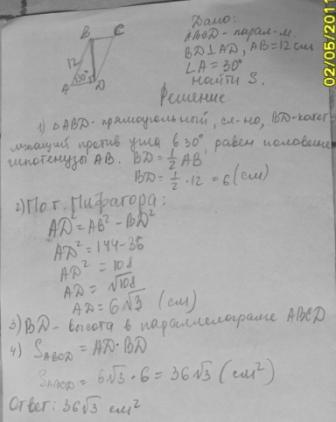 Дано:
ABCD - парал-м.
BD⊥AD, AB=12 см
∠A=30°
Найти S.
B C
12
A 30° D
Решение
1) △ABD - прямоугольный, сл-но, BD-катет
лежащий против угла в 30°, равен половине
гипотенузы AB. BD=½AB
BD=½·12=6(см)
2) По т. Пифагора:
AD²=AB²-BD²
AD²=144-36
AD²=108
AD=√108
AD=6√3 (см)
3) BD - высота в параллелограме ABCD
4) SABCD=AD·BD
SABCD=6√3·6=36√3 (см²)
Ответ: 36√3 см²
02/05/2011